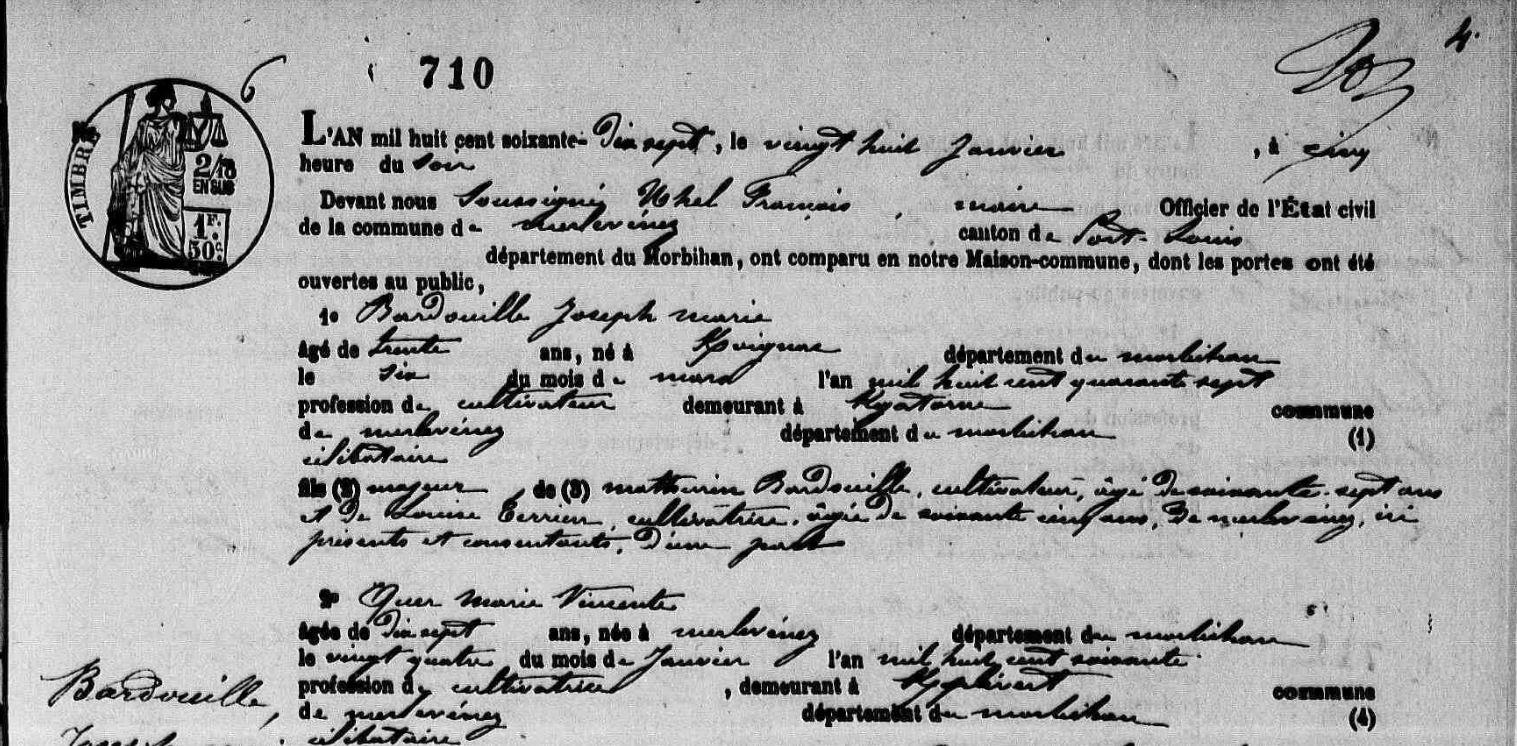 4.
6
710
TIMBRE
2/10
EN SUS
1F.
50c.
L'AN mil huit cent soixante-Dix sept, le vingt huit Janvier, à cinq
heure du soir
Devant nous Soussigné, Uhel François, maire Officier de l'État civil
de la commune de merlevénez canton de Port-Louis
département du Morbihan, ont comparu en notre Maison-commune, dont les portes ont été
ouvertes au public,
1o Bardouille Joseph marie
âgé de trente ans, né à Kvignac département du morbihan
le six du mois de mars l'an mil huit cent quarante sept
profession de cultivateur demeurant à commune
de merlevénez département du morbihan (1)
célibataire
fils (2) majeur de (3) mathurin Bardouille, cultivateur, âgé de soixante-sept ans
et de Louise Terrien, cultivatrice, âgée de soixante cinq ans, de merlevénez, ici
présents et consentants, d'une part
2o Quer marie Vincente
âgée de dix sept ans, née à merlevénez département du morbihan
le vingt quatre du mois de Janvier l'an mil huit cent soixante
profession de cultivatrice, demeurant à commune
de merlevénez département du morbihan (4)
célibataire
Bardouille,
Joseph